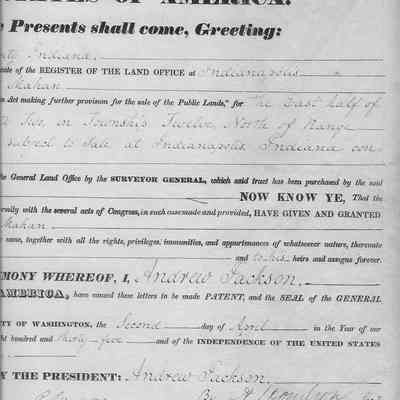 STATES OF AMERICA.
Presents shall come, Greeting:
Indiana
cate of the REGISTER OF THE LAND OFFICE at Indianapolis
Mahan
n Act making further provision for the sale of the Public Lands," for The East half of
Two, in Township Twelve, North of Range
subject to Sale at Indianapolis, Indiana con-
the General Land Office by the SURVEYOR GENERAL, which said tract has been purchased by the said
NOW KNOW YE, That the
ormity with the several acts of Congress, in such case made and provided, HAVE GIVEN AND GRANTED
Mahan
same, together with all the rights, privileges, immunities, and appurtenances of whatsoever nature, thereunto
and to his heirs and assigns forever.
MONY WHEREOF, I, Andrew Jackson,
AMERICA, have caused these letters to be made PATENT, and the SEAL of the GENERAL
TY OF WASHINGTON, the Second day of April in the Year of our
ght hundred and thirty five and of the INDEPENDENCE OF THE UNITED STATES
Y THE PRESIDENT: Andrew Jackson
By